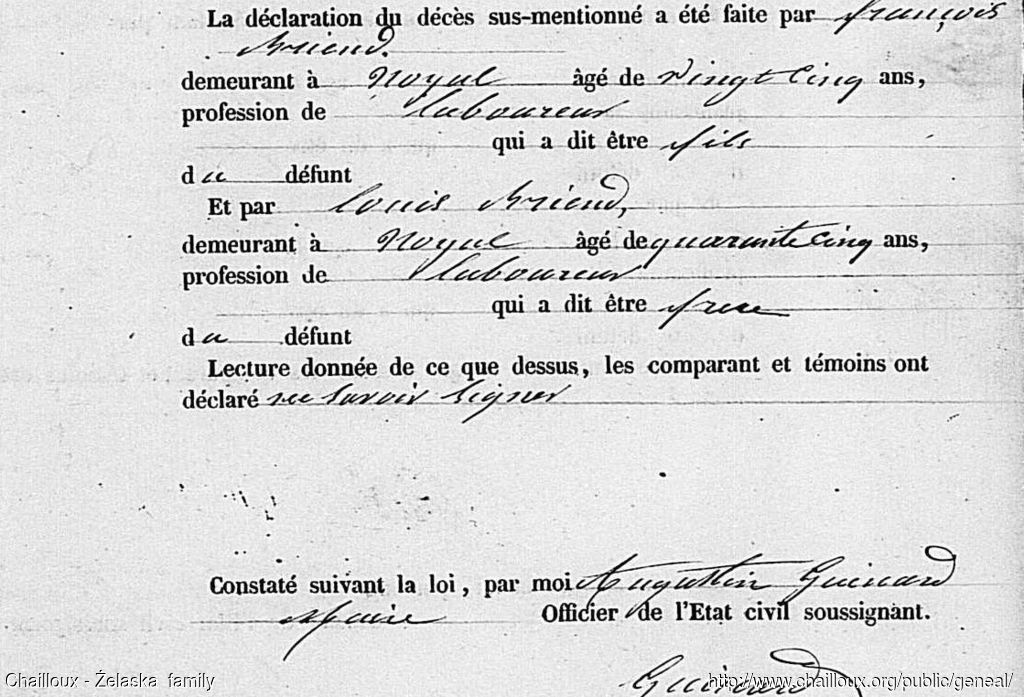 La déclaration du décès sus-mentionné a été faite par françois
Briend.
demeurant à Noyal âgé de vingt cinq ans,
profession de laboureur
qui a dit être fils
du défunt
Et par Louis Briend,
demeurant à Noyal âgé de quarante cinq ans,
profession de laboureur
qui a dit être frere
du défunt
Lecture donnée de ce que dessus, les comparant et témoins ont
déclaré ne savoir signer
Constaté suivant la loi, par moi Augustin Guinard
Maire Officier de l'Etat civil soussignant.
Guinard
Chailloux - Żelaska family http://www.chailloux.org/public/geneal/